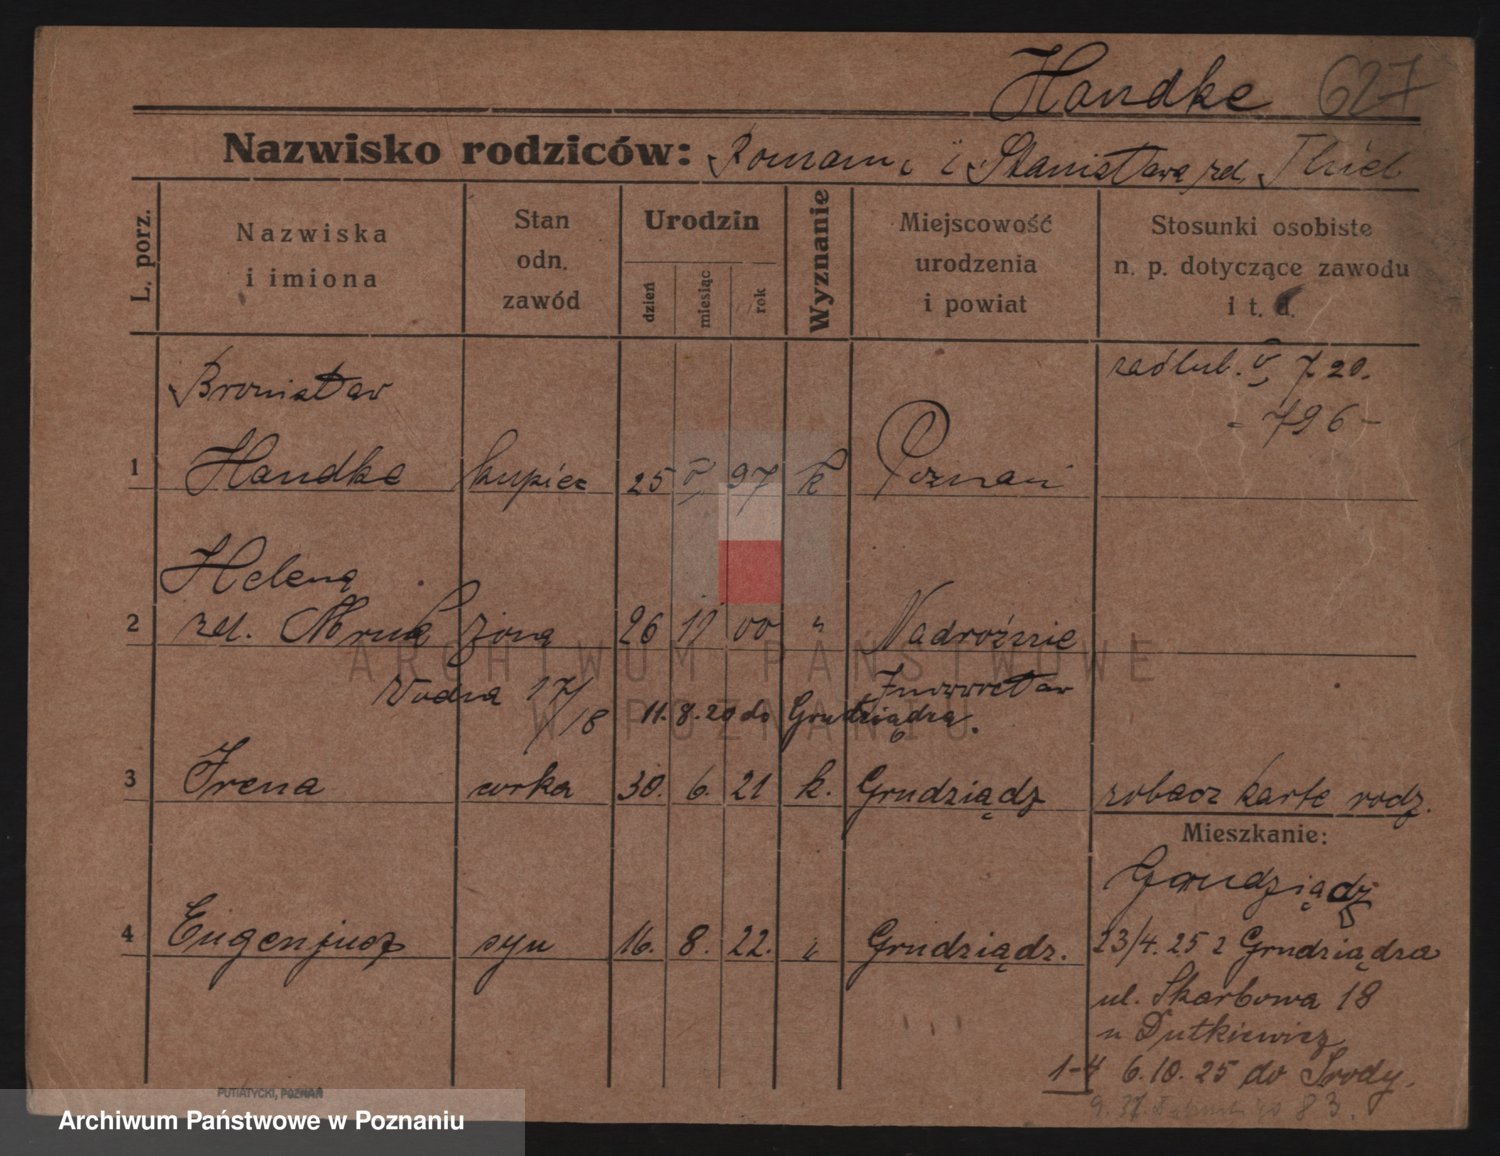 Handke 627
Nazwisko rodziców: Roman i Stanisława rd. Thiel
L. porz.
Nazwiska
i imiona
Stan
odn.
zawód
Urodzin
dzień
miesiąc
rok
Wyznanie
Miejscowość
urodzenia
i powiat
Stosunki osobiste
n. p. dotyczące zawodu
i t. d.
Bronisław zaślub. 7.20.
- 796 -
1 Handke kupiec 25 V 97 k Poznań
Helena
2 rd. żona 26 00 " Nadrożnie
Wodna 17/18 11.8.20 do Grudziądza.
3 Irena corka 30. 6. 21 k. Grudziądz zobacz karte rodz.
Mieszkanie:
Grudziądz
4 Eugenjusz syn 16. 8. 22. " Grudziądz. 23/4.25 z Grudziądza
ul. Skarbowa 18
u Dutkiewicz
1-4 6.10.25 do Środy.
83.
ARCHIWUM PAŃSTWOWE
W POZNANIU
PUTIATYCKI, POZNAŃ
Archiwum Państwowe w Poznaniu